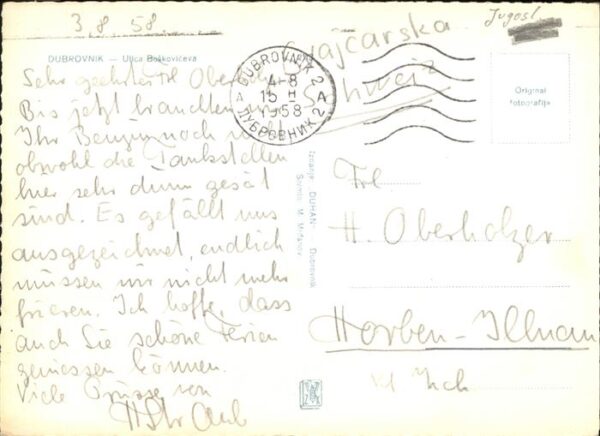 3 8 58
Jugosl.
Švajčarska
Schweiz
DUBROVNIK — Ulica Boškovićeva
Sehr geehrtes Frl Oberholzer
Bis jetzt brauchten wir
Ihr Benzin noch nicht
obwohl die Tankstellen
hier sehr dünn gesät
sind. Es gefällt uns
ausgezeichnet, endlich
müssen wir nicht mehr
frieren. Ich hoffe, dass
auch Sie schöne Ferien
geniessen können.
Viele Grüsse von
DUBROVNIK 2
4-8
15 H
1958
A A
ДУБРОВНИК 2
Original
fotografija
Izdanje "DUHAN" - Dubrovnik
Frl
H. Oberholzer
Horben-Illnau